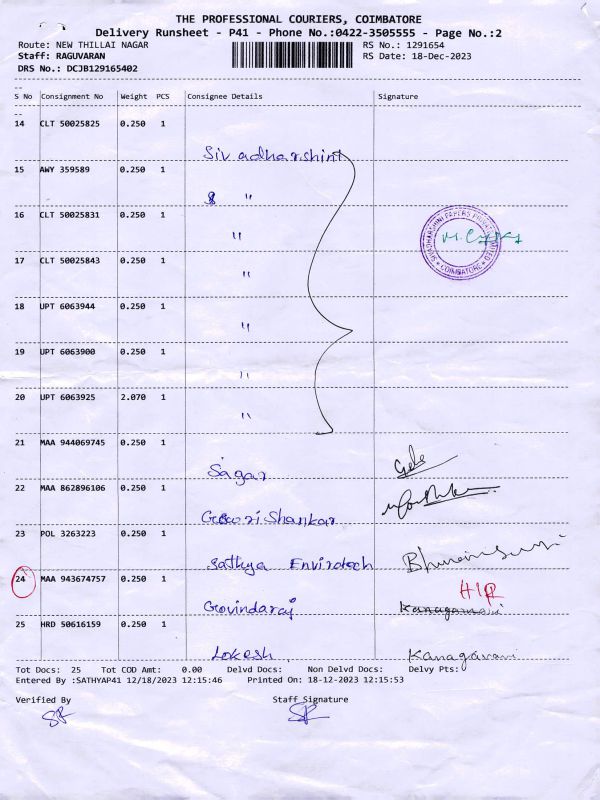 THE PROFESSIONAL COURIERS, COIMBATORE
Delivery Runsheet - P41 - Phone No.:0422-3505555 - Page No.:2
Route: NEW THILLAI NAGAR RS No.: 1291654
Staff: RAGUVARAN RS Date: 18-Dec-2023
DRS No.: DCJB129165402
--
S No Consignment No Weight PCS Consignee Details Signature
--
14 CLT 50025825 0.250 1
Sivadharshini
15 AWY 359589 0.250 1
"
16 CLT 50025831 0.250 1
"
SIVADHARSHINI PAPERS PRIVATE LIMITED * COIMBATORE *
17 CLT 50025843 0.250 1
"
18 UPT 6063944 0.250 1
"
19 UPT 6063900 0.250 1
"
20 UPT 6063925 2.070 1
"
21 MAA 944069745 0.250 1
Sagar
22 MAA 862896106 0.250 1
Gowri Shankar
23 POL 3263223 0.250 1
Sathya Envirotech
24 MAA 943674757 0.250 1
Govindaraj
25 HRD 50616159 0.250 1
Lokesh Kanagavani
Tot Docs: 25 Tot COD Amt: 0.00 Delvd Docs: Non Delvd Docs: Delvy Pts:
Entered By :SATHYAP41 12/18/2023 12:15:46 Printed On: 18-12-2023 12:15:53
Verified By Staff Signature